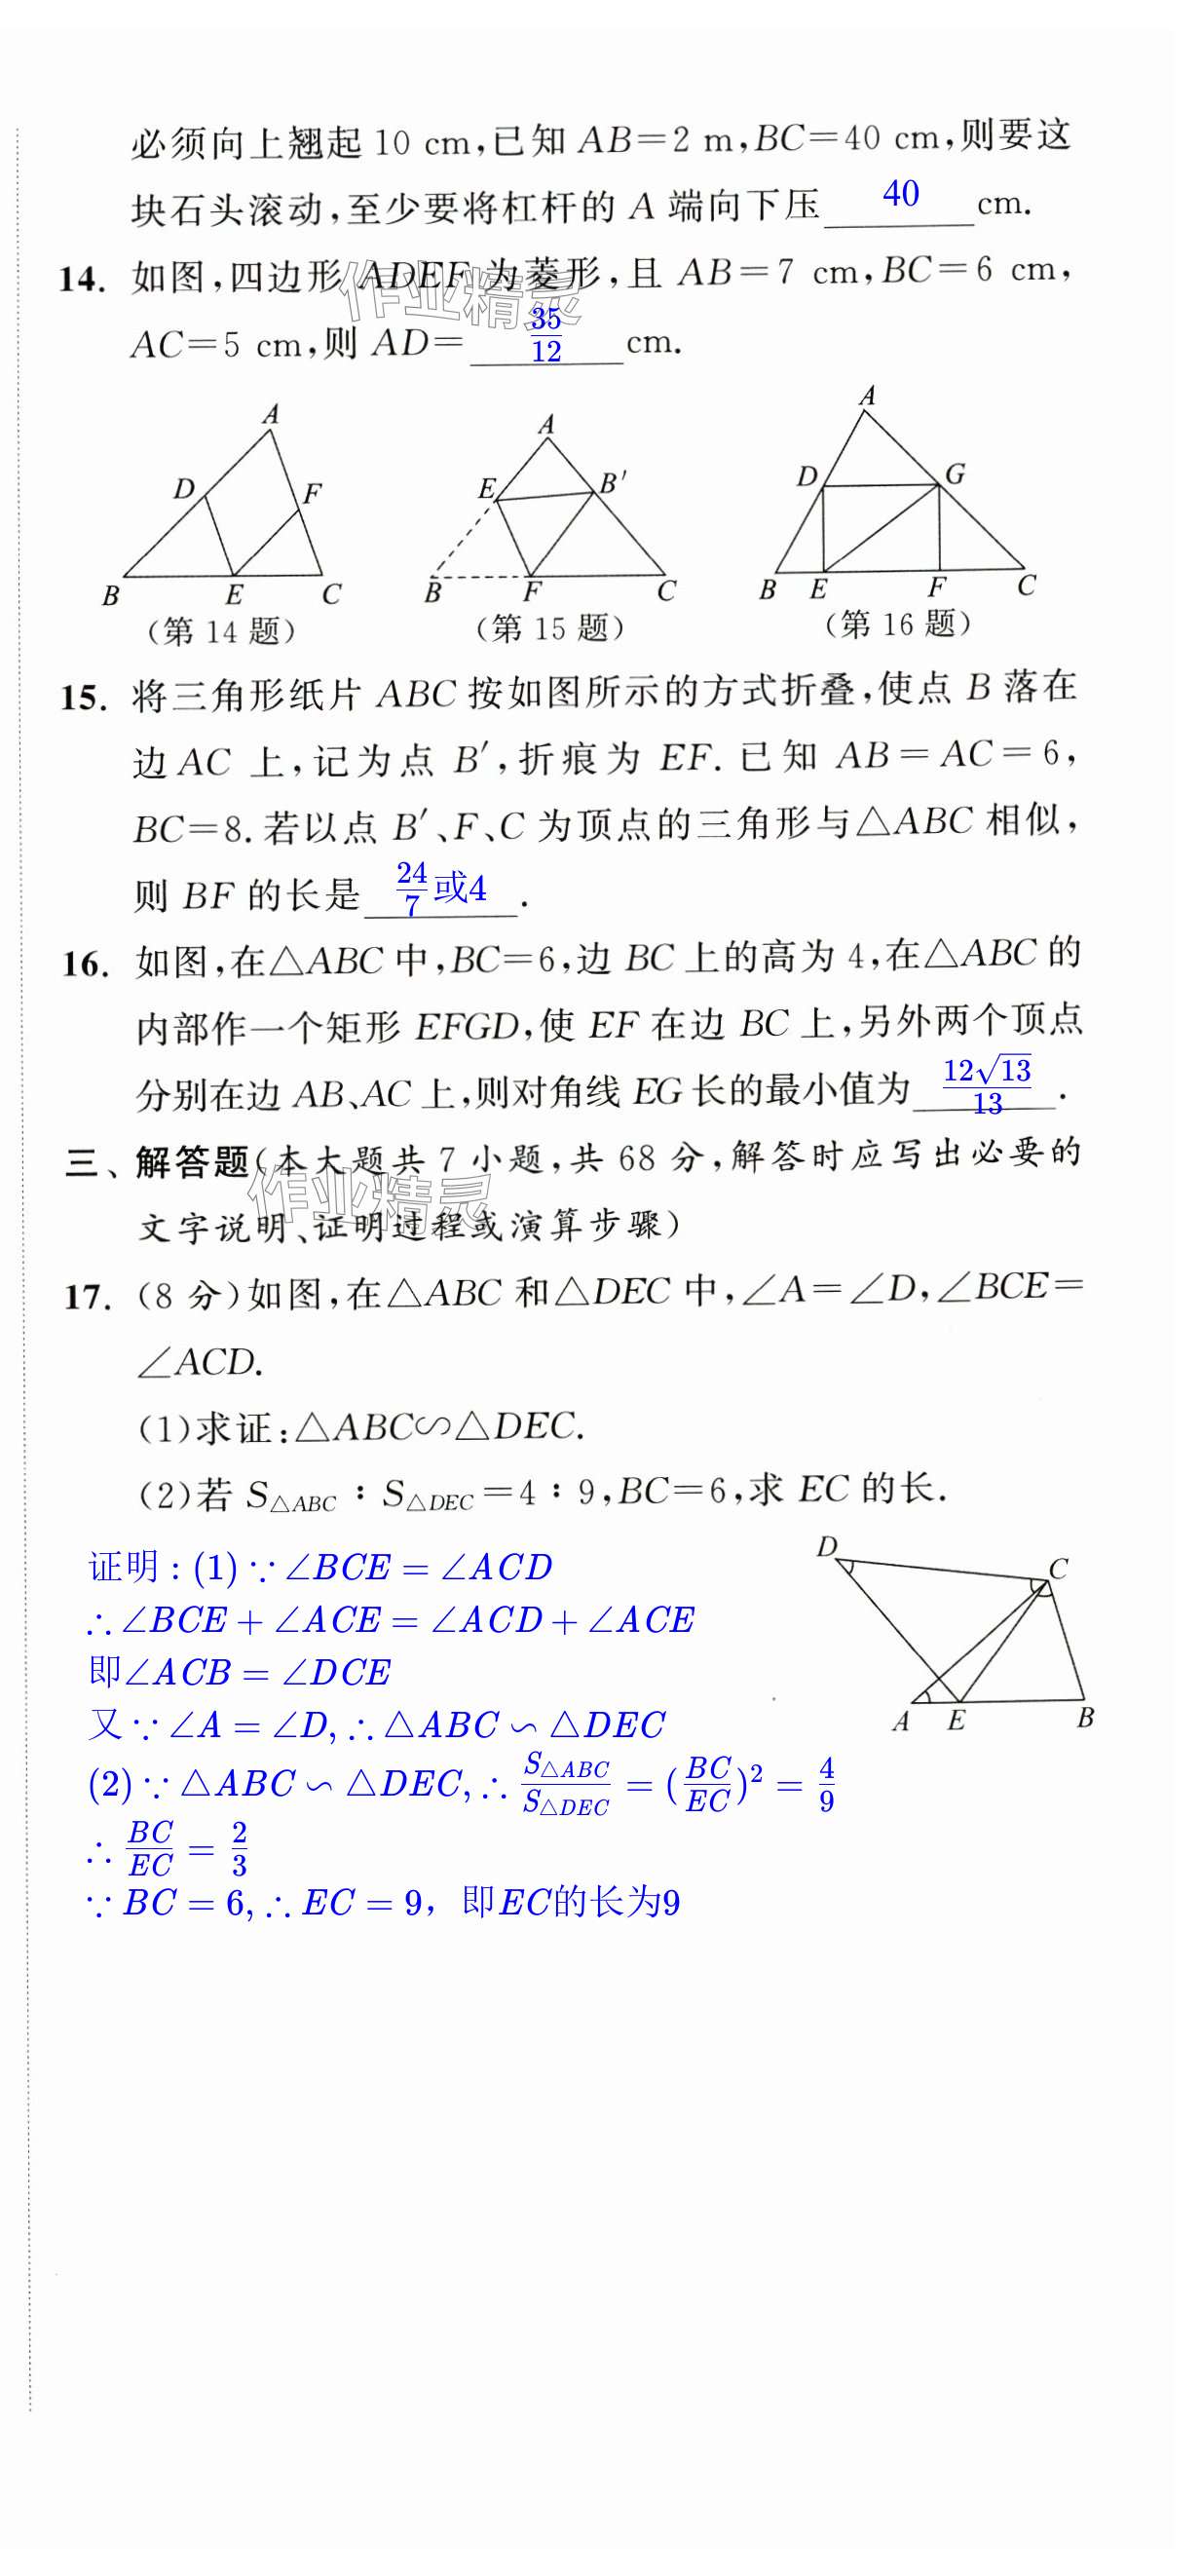 必须向上翘起 10 cm,已知 AB=2 m,BC=40 cm,则要这
块石头滚动,至少要将杠杆的 A 端向下压 40 cm.
14. 如图,四边形 ADEF 为菱形,且 AB=7 cm,BC=6 cm,
作业精灵
AC=5 cm,则 AD= 35/12 cm.
A
D
F
B
E
C
(第 14 题)
A
E
B′
B
F
C
(第 15 题)
A
D
G
B
E
F
C
(第 16 题)
15. 将三角形纸片 ABC 按如图所示的方式折叠,使点 B 落在
边 AC 上,记为点 B′,折痕为 EF. 已知 AB=AC=6,
BC=8.若以点 B′、F、C 为顶点的三角形与△ABC 相似,
则 BF 的长是 24/7 或4 .
16. 如图,在△ABC 中,BC=6,边 BC 上的高为 4,在△ABC 的
内部作一个矩形 EFGD,使 EF 在边 BC 上,另外两个顶点
分别在边 AB、AC 上,则对角线 EG 长的最小值为 12√13/13 .
三、解答题(本大题共 7 小题,共 68 分,解答时应写出必要的
作业精灵
文字说明、证明过程或演算步骤)
17. (8 分)如图,在△ABC 和△DEC 中,∠A=∠D,∠BCE=
∠ACD.
(1)求证:△ABC∽△DEC.
(2)若 S△ABC : S△DEC=4 : 9,BC=6,求 EC 的长.
证明 : (1) ∵ ∠BCE = ∠ACD
∴ ∠BCE + ∠ACE = ∠ACD + ∠ACE
即∠ACB = ∠DCE
又 ∵ ∠A = ∠D, ∴ △ABC ∽ △DEC
(2) ∵ △ABC ∽ △DEC, ∴ S△ABC/S△DEC = (BC/EC)² = 4/9
∴ BC/EC = 2/3
∵ BC = 6, ∴ EC = 9，即EC的长为9
D
C
A
E
B